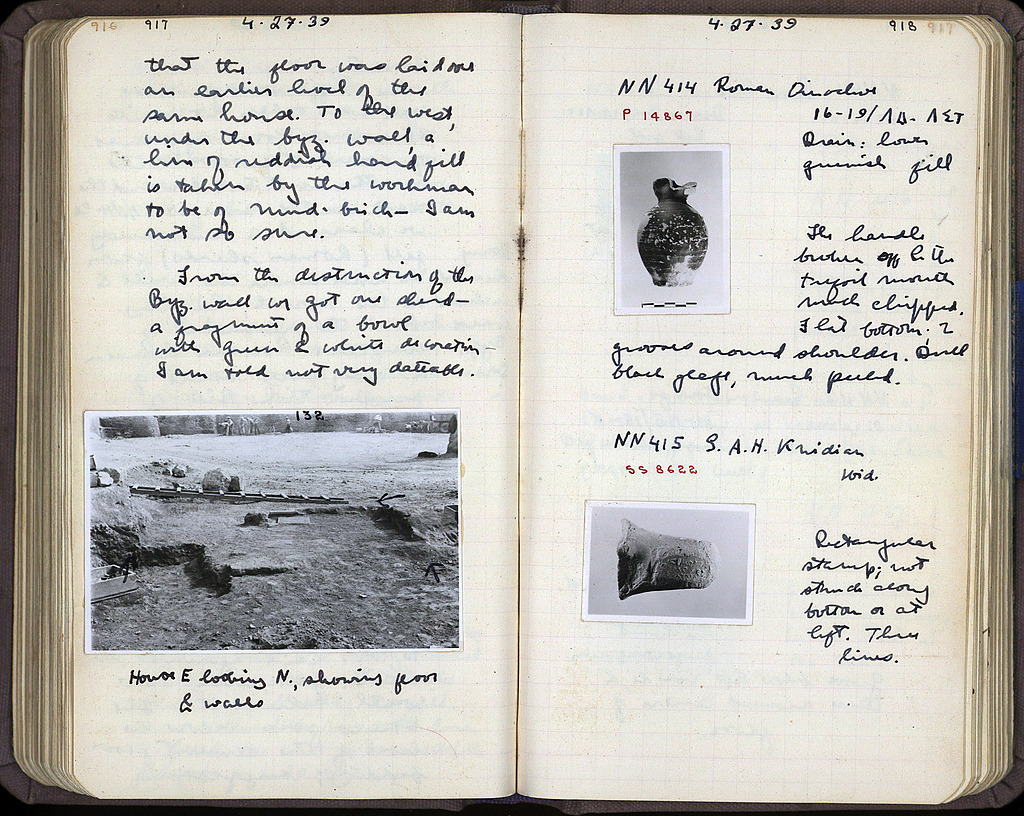 916 917 4-27-39
that the floor was laid over
an earlier level of the
same house. To the west,
under the byz. wall, a
line of reddish hard fill
is taken by the workman
to be of mud-brick — I am
not so sure.
From the destruction of the
Byz. wall we got one sherd —
a fragment of a bowl
with green & white decoration —
I am told not very dateable.
132
House E looking N., showing floor
& walls
4-27-39 918 917
NN 414 Roman Oinochoe
P 14867
16-19/ΛΔ-ΛΣΤ
Drain: lower
greenish fill
The handle
broken off & the
trefoil mouth
much chipped.
Flat bottom. 2
grooves around shoulder. Dull
black glaze, much peeled.
NN 415 S.A.H. Knidian
SS 8622
wid.
Rectangular
stamp; not
struck along
bottom or at
left. Three
lines.